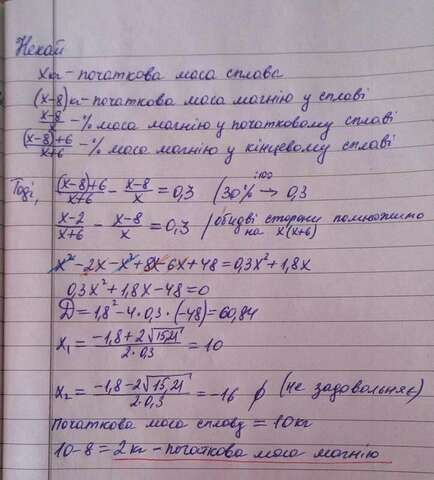 Нехай
x кг - початкова маса сплава
(x-8) кг - початкова маса магнію у сплаві
(x-8)/x - % маса магнію у початковому сплаві
((x-8)+6)/(x+6) - % маса магнію у кінцевому сплаві
Тоді, ((x-8)+6)/(x+6) - (x-8)/x = 0,3 / 30% :100 → 0,3
(x-2)/(x+6) - (x-8)/x = 0,3 / обидві сторони помножимо
на x(x+6)
x² - 2x - x² + 8x - 6x + 48 = 0,3x² + 1,8x
0,3x² + 1,8x - 48 = 0
D = 1,8² - 4·0,3·(-48) = 60,84
x₁ = (-1,8 + 2√15,21)/(2·0,3) = 10
x₂ = (-1,8 - 2√15,21)/(2·0,3) = -16 ∅ (не задовольняє)
Початкова маса сплаву = 10 кг
10 - 8 = 2 кг - початкова маса магнію